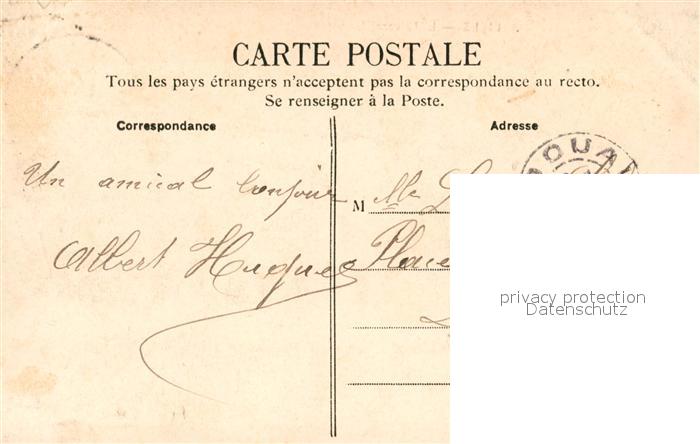 CARTE POSTALE
Tous les pays étrangers n'acceptent pas la correspondance au recto.
Se renseigner à la Poste.
Correspondance
Adresse
DOUAI
Un amical bonjour
Albert Hugues
M Mlle
Place
privacy protection
Datenschutz